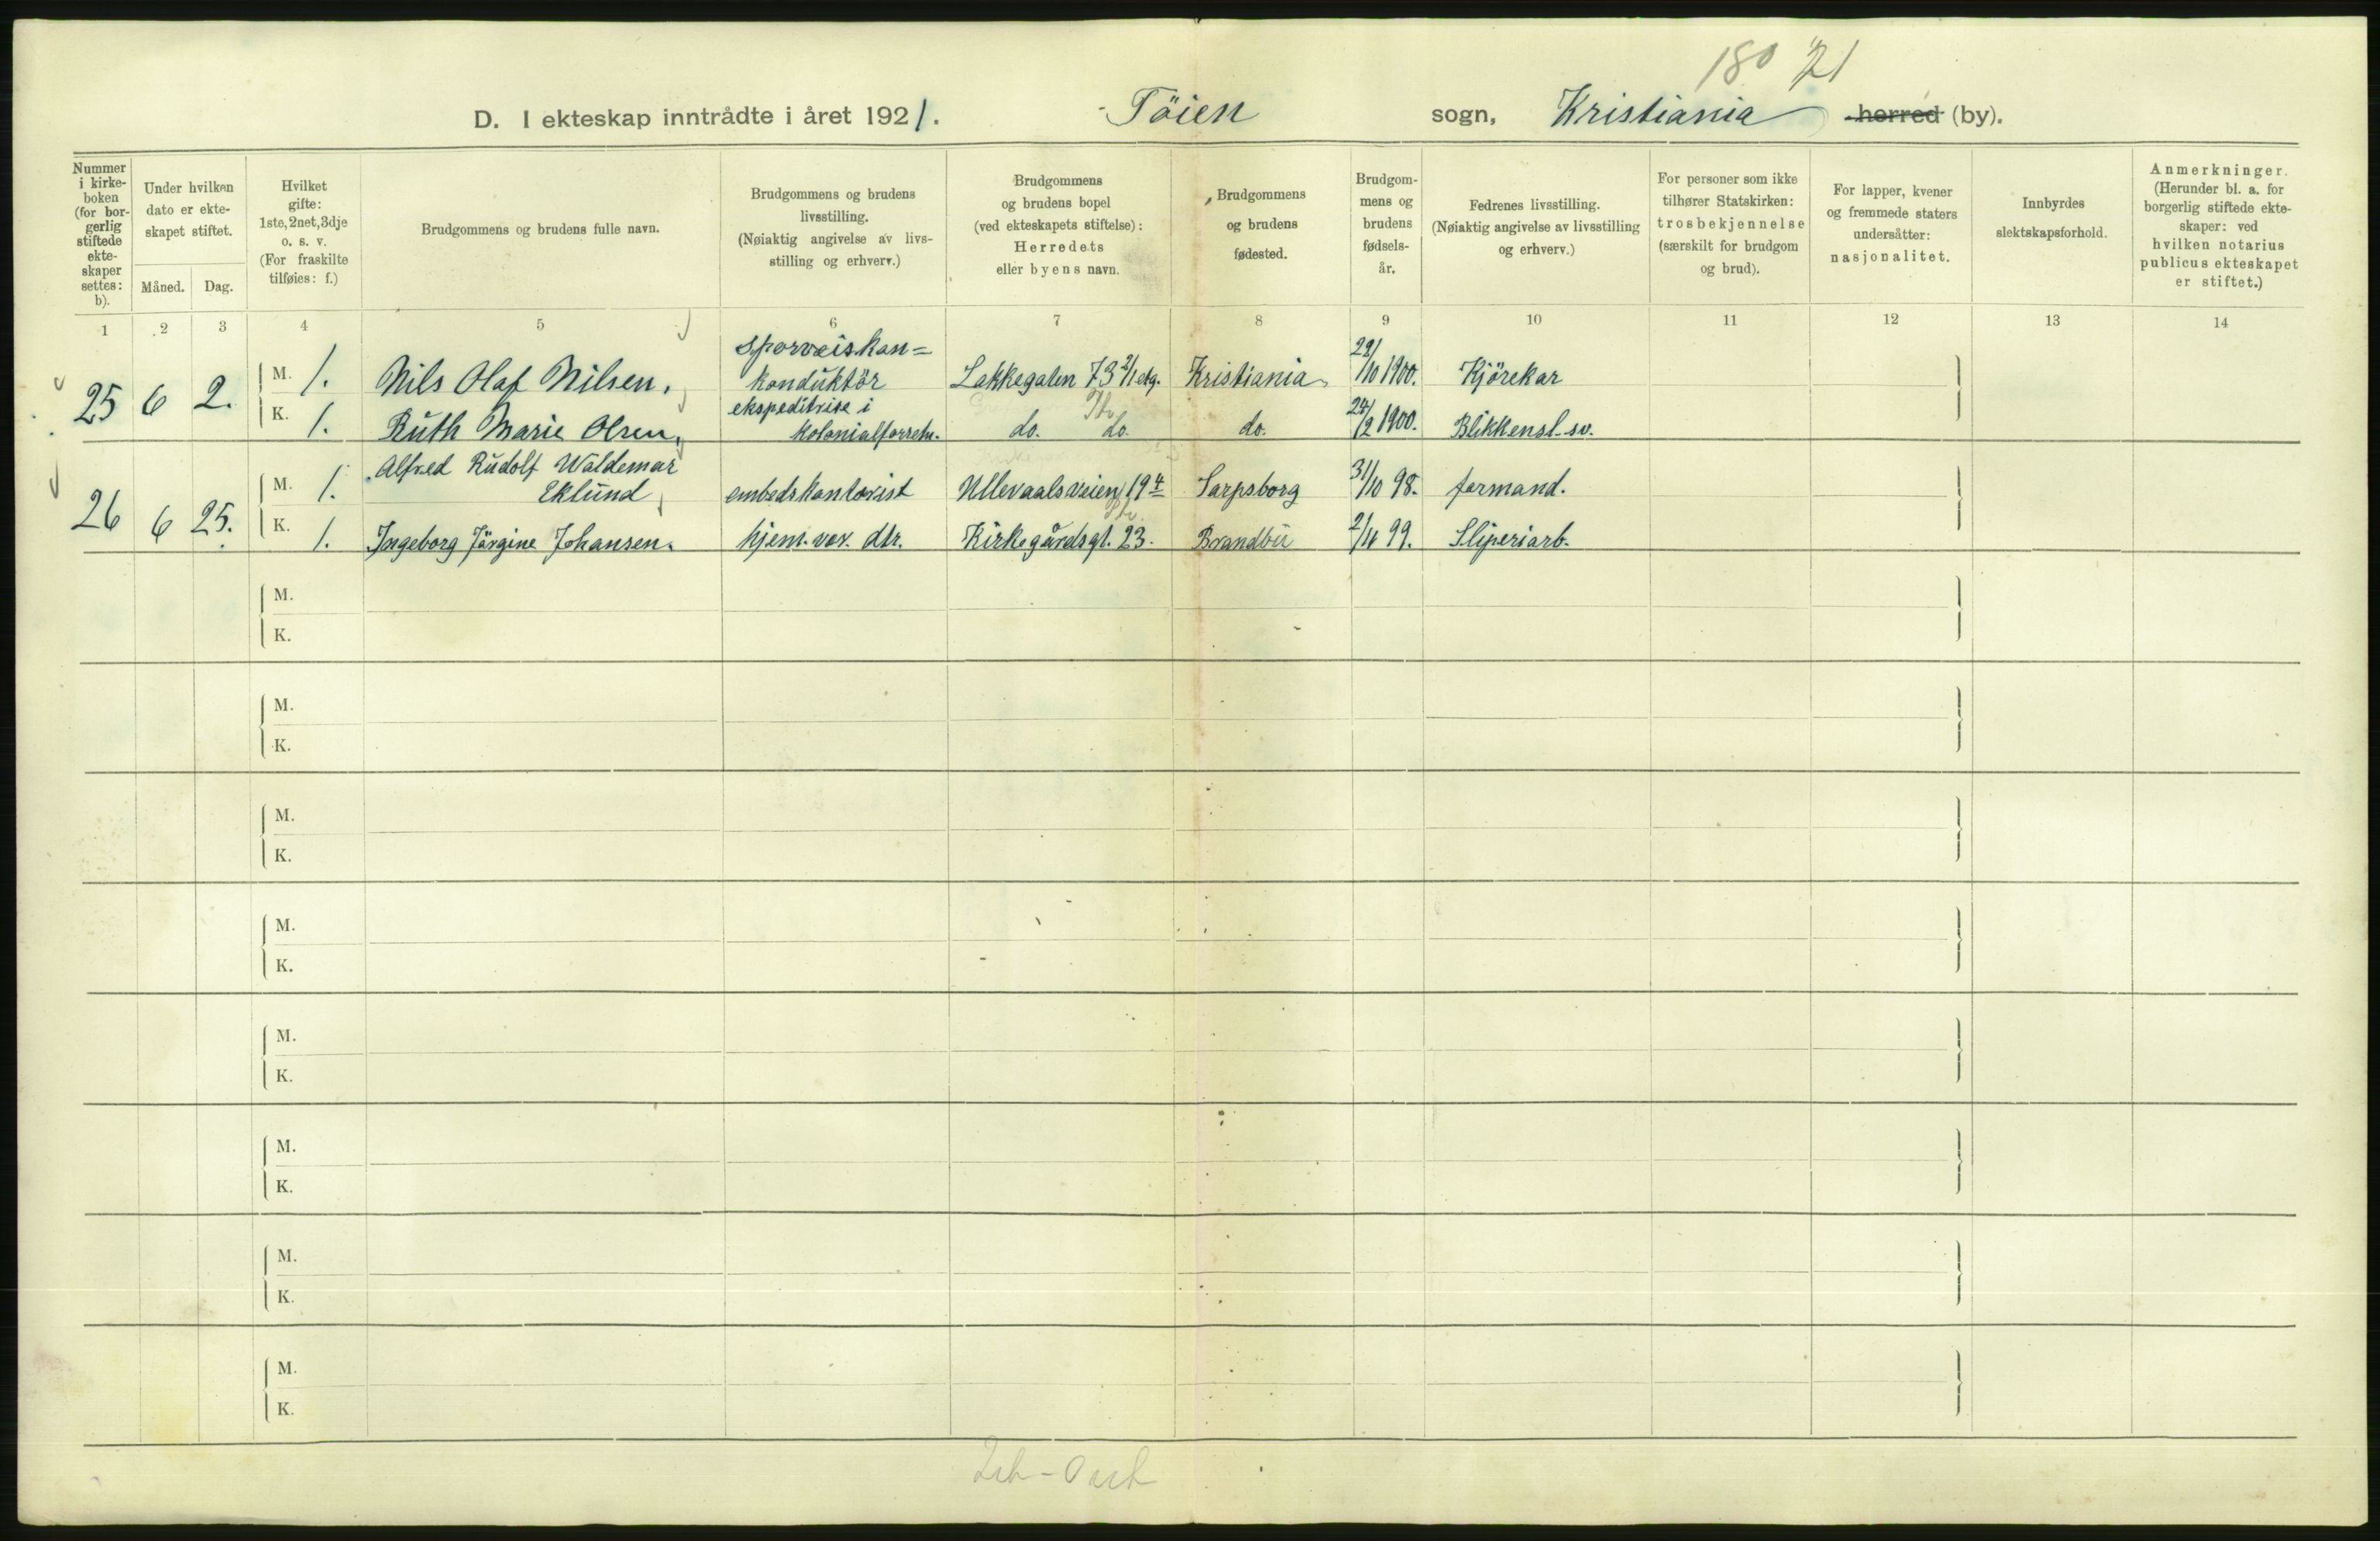 180 21
D. I ekteskap inntrådte i året 1921. Töien sogn, Kristiania herred (by).
Nummer i kirke-boken (for bor-gerlig stiftede ekte-skaper settes: b).
Under hvilken dato er ekte-skapet stiftet.
Måned. Dag.
Hvilket gifte: 1ste, 2net, 3dje o. s. v. (For fraskilte tilføies: f.)
Brudgommens og brudens fulle navn.
Brudgommens og brudens livsstilling. (Nøiaktig angivelse av livs-stilling og erhverv.)
Brudgommens og brudens bopel (ved ekteskapets stiftelse): Herredets eller byens navn.
Brudgommens og brudens fødested.
Brudgom-mens og brudens fødsels-år.
Fedrenes livsstilling. (Nøiaktig angivelse av livsstilling og erhverv.)
For personer som ikke tilhører Statskirken: trosbekjennelse (særskilt for brudgom og brud).
For lapper, kvener og fremmede staters undersåtter: nasjonalitet.
Innbyrdes slektskapsforhold.
Anmerkninger. (Herunder bl. a. for borgerlig stiftede ekte-skaper: ved hvilken notarius publicus ekteskapet er stiftet.)
1 2 3 4 5 6 7 8 9 10 11 12 13 14
25 6 2. M. 1. Nils Olaf Nilsen. Sporveiskan= konduktör Lakkegaten 73 2/1 etg. Kristiania 22/10 1900. Kjörekar
K. 1. Ruth Marie Olsen, ekspeditrise i kolonialforretn. do. do. do. 24/2 1900. Blikkensl. sv.
26 6 25. M. 1. Alfred Rudolf Waldemar Eklund embedskontorist Ullevaalsveien 19 4 Sarpsborg 31/10 98. formand.
K. 1. Ingeborg Jörgine Johansen. hjem. vær. dtr. Kirkegårdsgt. 23. Brandbu 2/11 99. Sliperiarb.
M.
K.
M.
K.
M.
K.
M.
K.
M.
K.
M.
K.
M.
K.
M.
K.